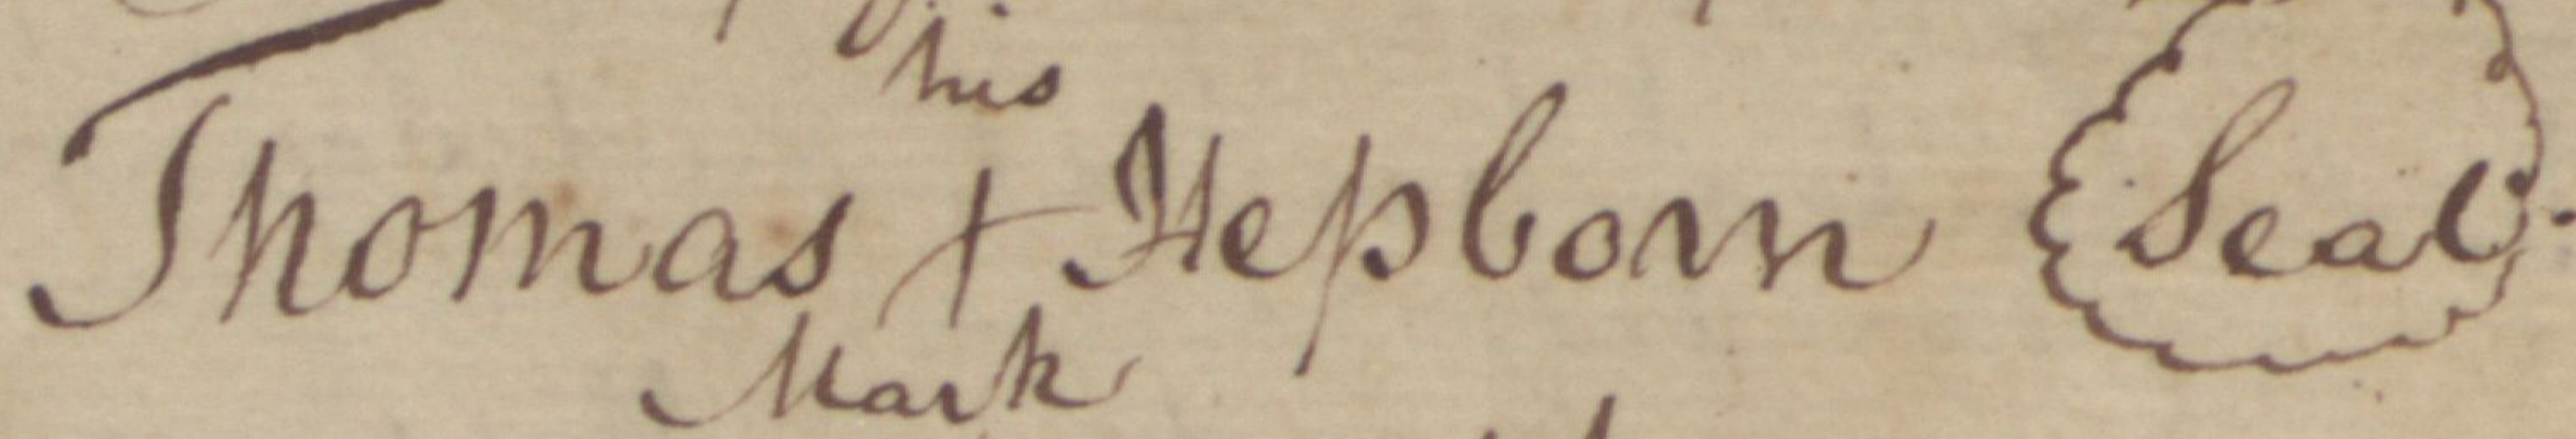 his
Thomas + Hepborn Seal
Mark